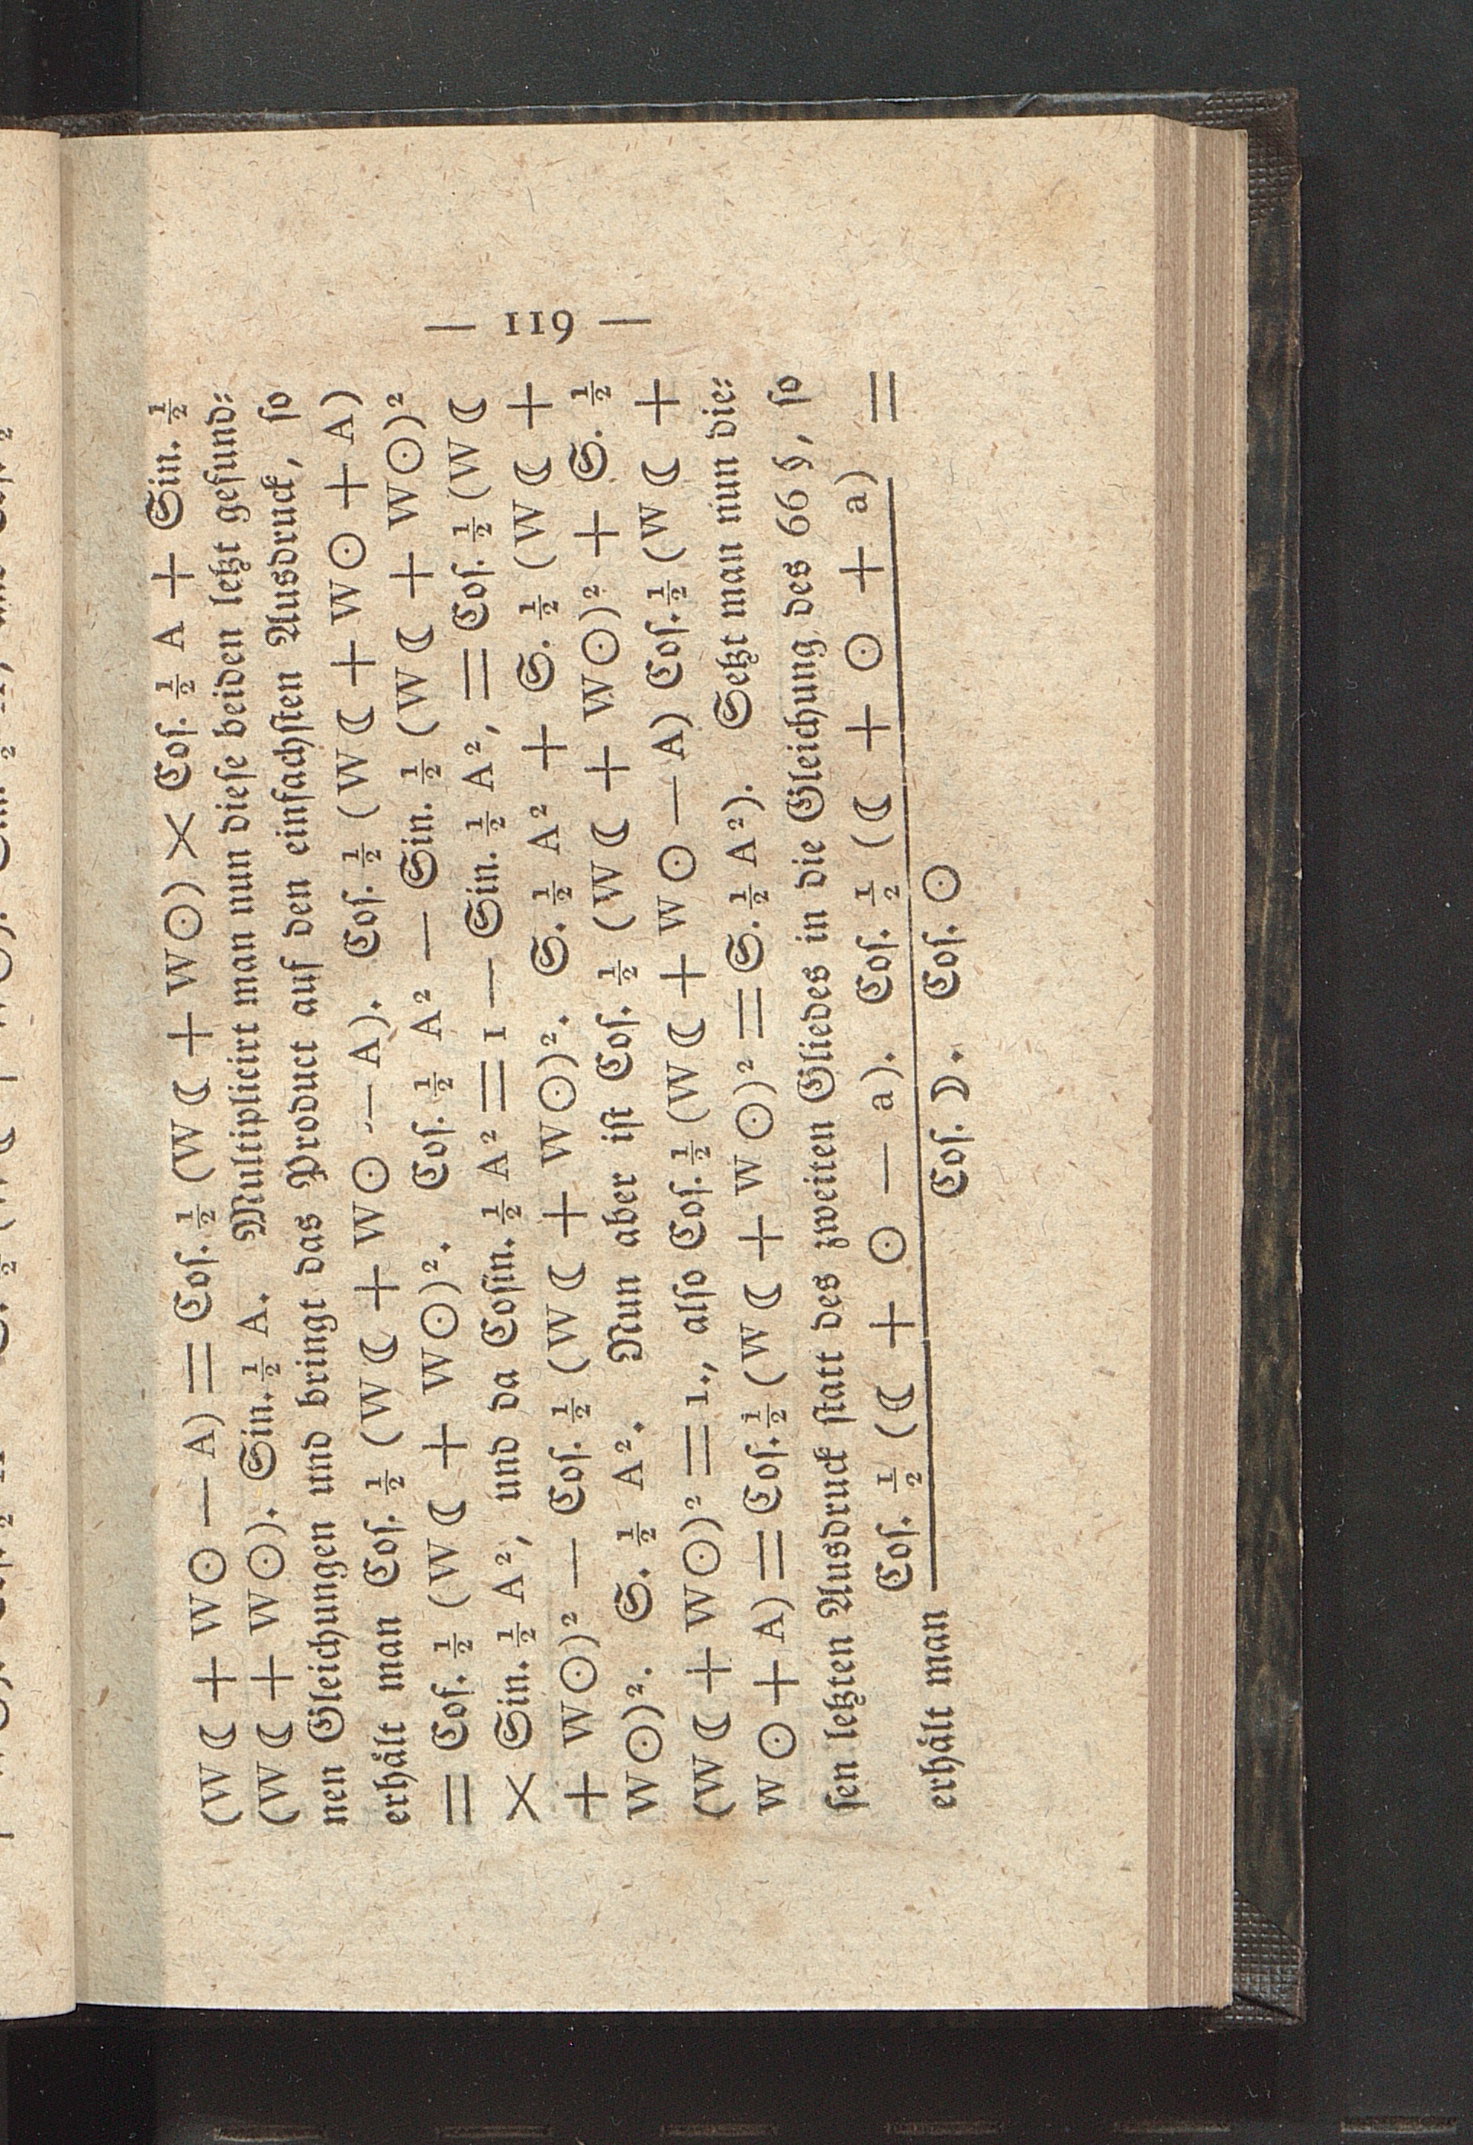 — 119 —
(W☾ + W☉ — A) = Coſ. ½ (W☾ + W☉) × Coſ. ½ A + Sin. ½
(W☾ + W☉). Sin. ½ A. Multiplicirt man nun dieſe beiden letzt gefund⸗
nen Gleichungen und bringt das Product auf den einfachſten Ausdruck, ſo
erhält man Coſ. ½ (W☾ + W☉ — A). Coſ. ½ (W☾ + W☉ + A)
= Coſ. ½ (W☾ + W☉)². Coſ. ½ A² — Sin. ½ (W☾ + W☉)²
× Sin. ½ A², und da Coſin. ½ A² = 1 — Sin. ½ A², = Coſ. ½ (W☾
+ W☉)² — Coſ. ½ (W☾ + W☉)². S. ½ A² + S. ½ (W☾ +
W☉)². S. ½ A². Nun aber iſt Coſ. ½ (W☾ + W☉)² + S. ½
(W☾ + W☉)² = 1., alſo Coſ. ½ (W☾ + W☉ — A) Coſ. ½ (W☾ +
W☉ + A) = Coſ. ½ (W☾ + W☉)² = S. ½ A²). Setzt man nun die⸗
ſen letzten Ausdruck ſtatt des zweiten Gliedes in die Gleichung des 66 §, ſo
Coſ. ½ (☾ + ☉ — a). Coſ. ½ (☾ + ☉ + a)
erhält man =
Coſ. ☽. Coſ. ☉